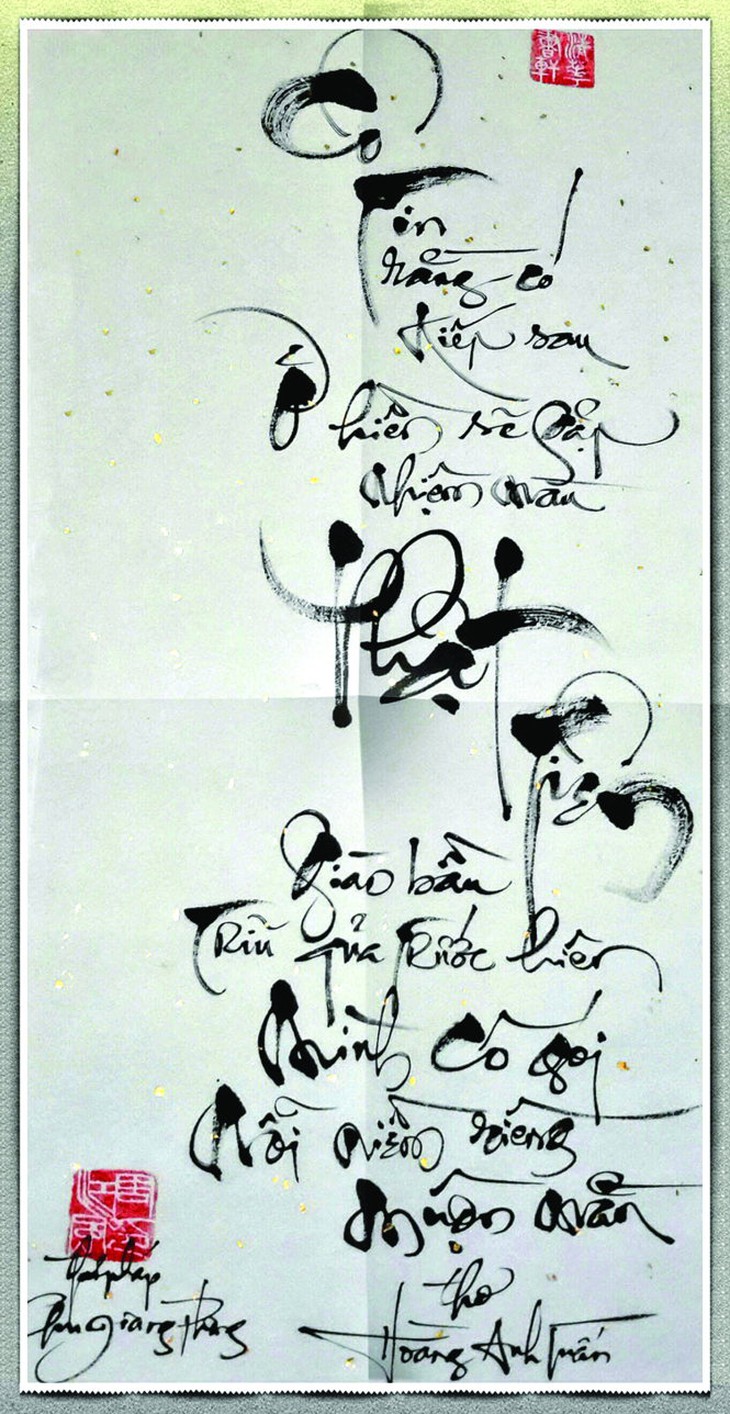 Cô
Tin
rằng có
kiếp sau
Ở hiền sẽ gặp
nhiệm màu
Phật
Tiên
Giàn bầu
Trĩu quả trước hiên
Mình cô gói
Nỗi niềm riêng
Muộn mằn
thơ
Hoàng Anh Tuấn
Thư pháp
Giang Phong